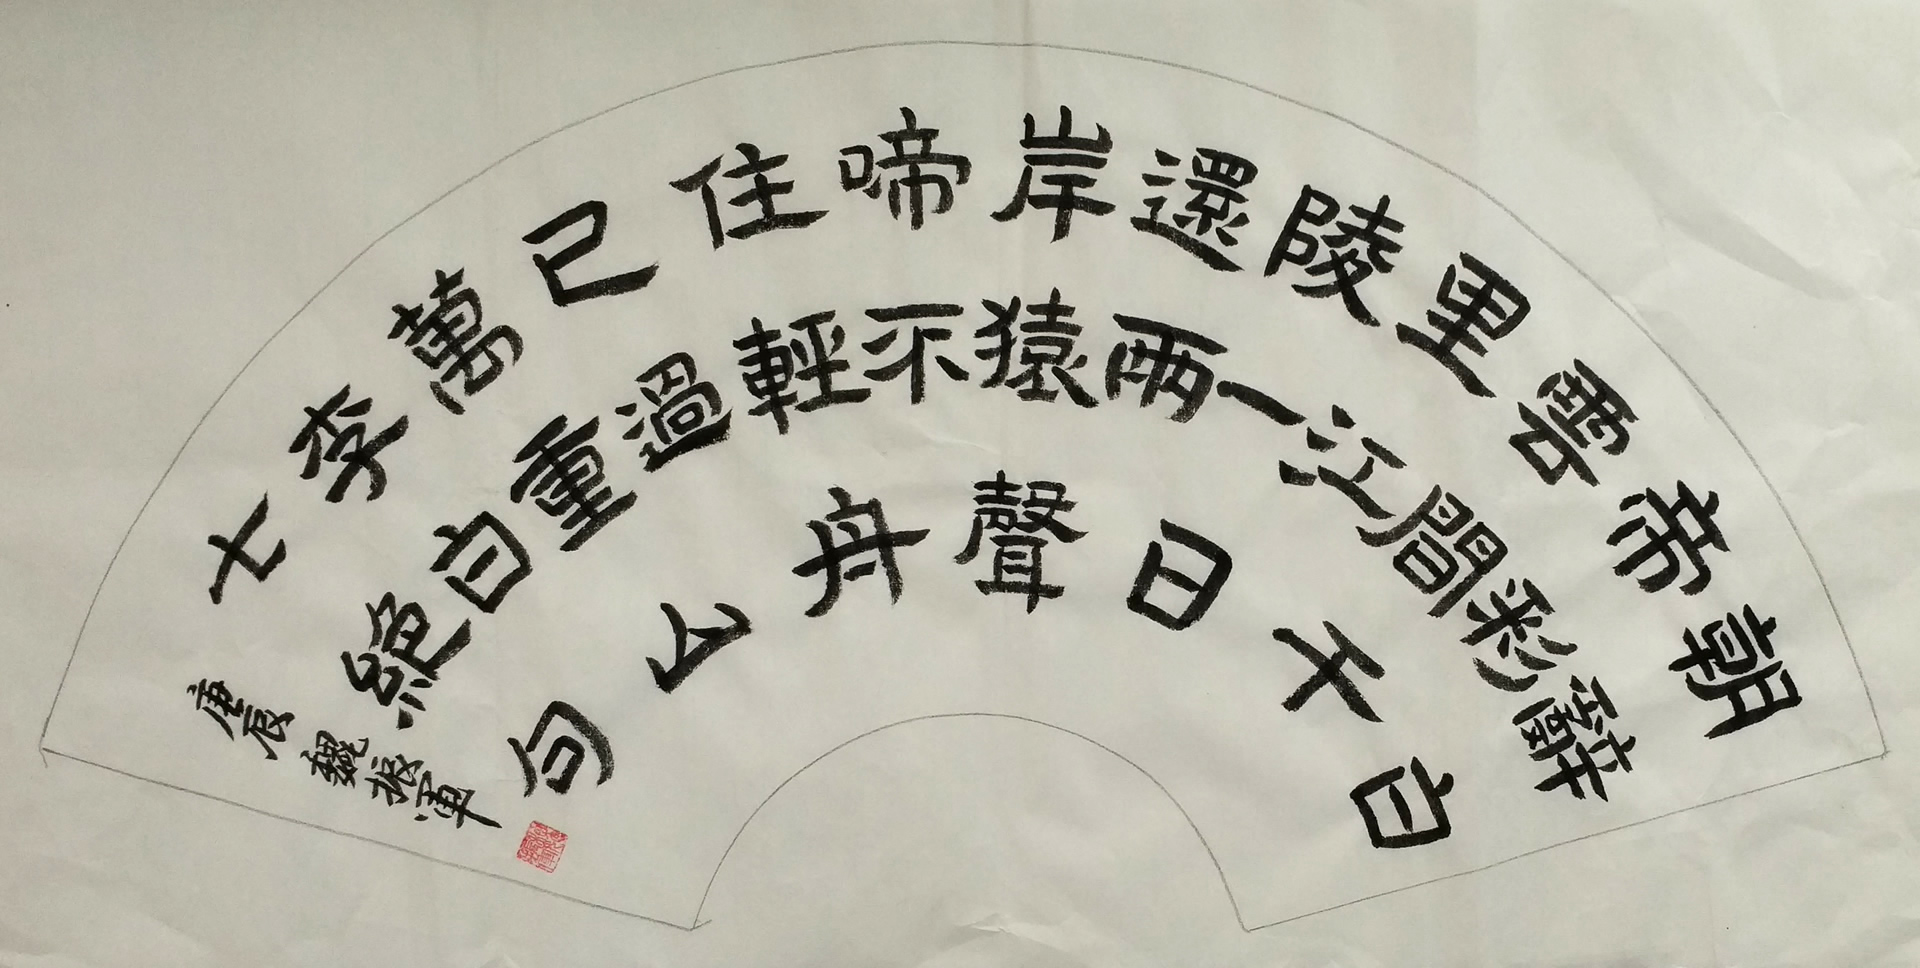 朝辭白
帝彩
雲間千
里江
陵一日
還兩
岸猿聲
啼不
住輕舟
已過
萬重山
李白
七絕句
庚辰魏振軍